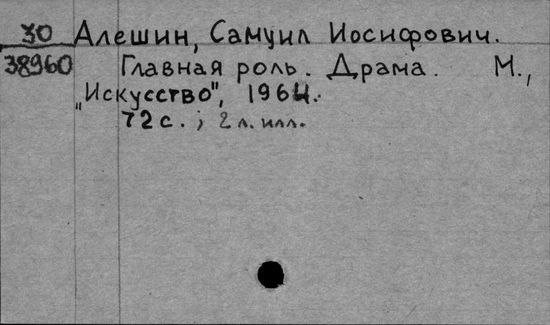 30 Алешин, Самуил Иосифович.
38960 Главная роль. Драма. М.,
„Искусство", 1964.
72 с.; 2 л. илл.